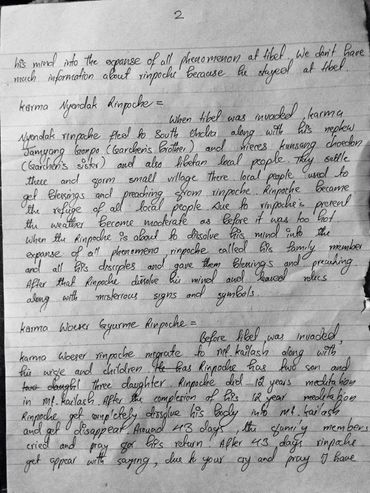 2
his mind into the expanse of all phenomenon at tibet. We don't have
much information about rinpoche because he stayed at tibet.
Karma Nyendak Rinpoche =
When tibet was invaded, karma
Nyendak rinpoche fled to South India along with his nephew
Jamyang Gonpo (Garchen's brother) and nieces kunsang choedon
(Garchen's sister) and also tibetan local people. They settle
there and form small village. There local people used to
get blessings and preaching from rinpoche. Rinpoche became
the refuge of all local people. Due to rinpoche's present
the weather become moderate as before it was too hot.
When the Rinpoche is about to dissolve his mind into the
expanse of all phenomena, rinpoche called his family member
and all his disciples and gave them blessings and preaching
After that Rinpoche dissolve his mind and leaved relics
along with misterious signs and symbols.
Karma Woeser Gyurme Rinpoche =
Before tibet was invaded,
karma woeser rinpoche migrate to Mt. kailash along with
his wife and children. He has Rinpoche has two son and
two daught three daughter. Rinpoche did 12 years meditation
in Mt. kailash. After the completion of his 12 year meditation
Rinpoche get completely dissolve his body into Mt. kailash
and get disappear. Around 43 days, the family members
cried and pray for his return. After 43 days rinpoche
get appear with saying, due to your cry and pray I have